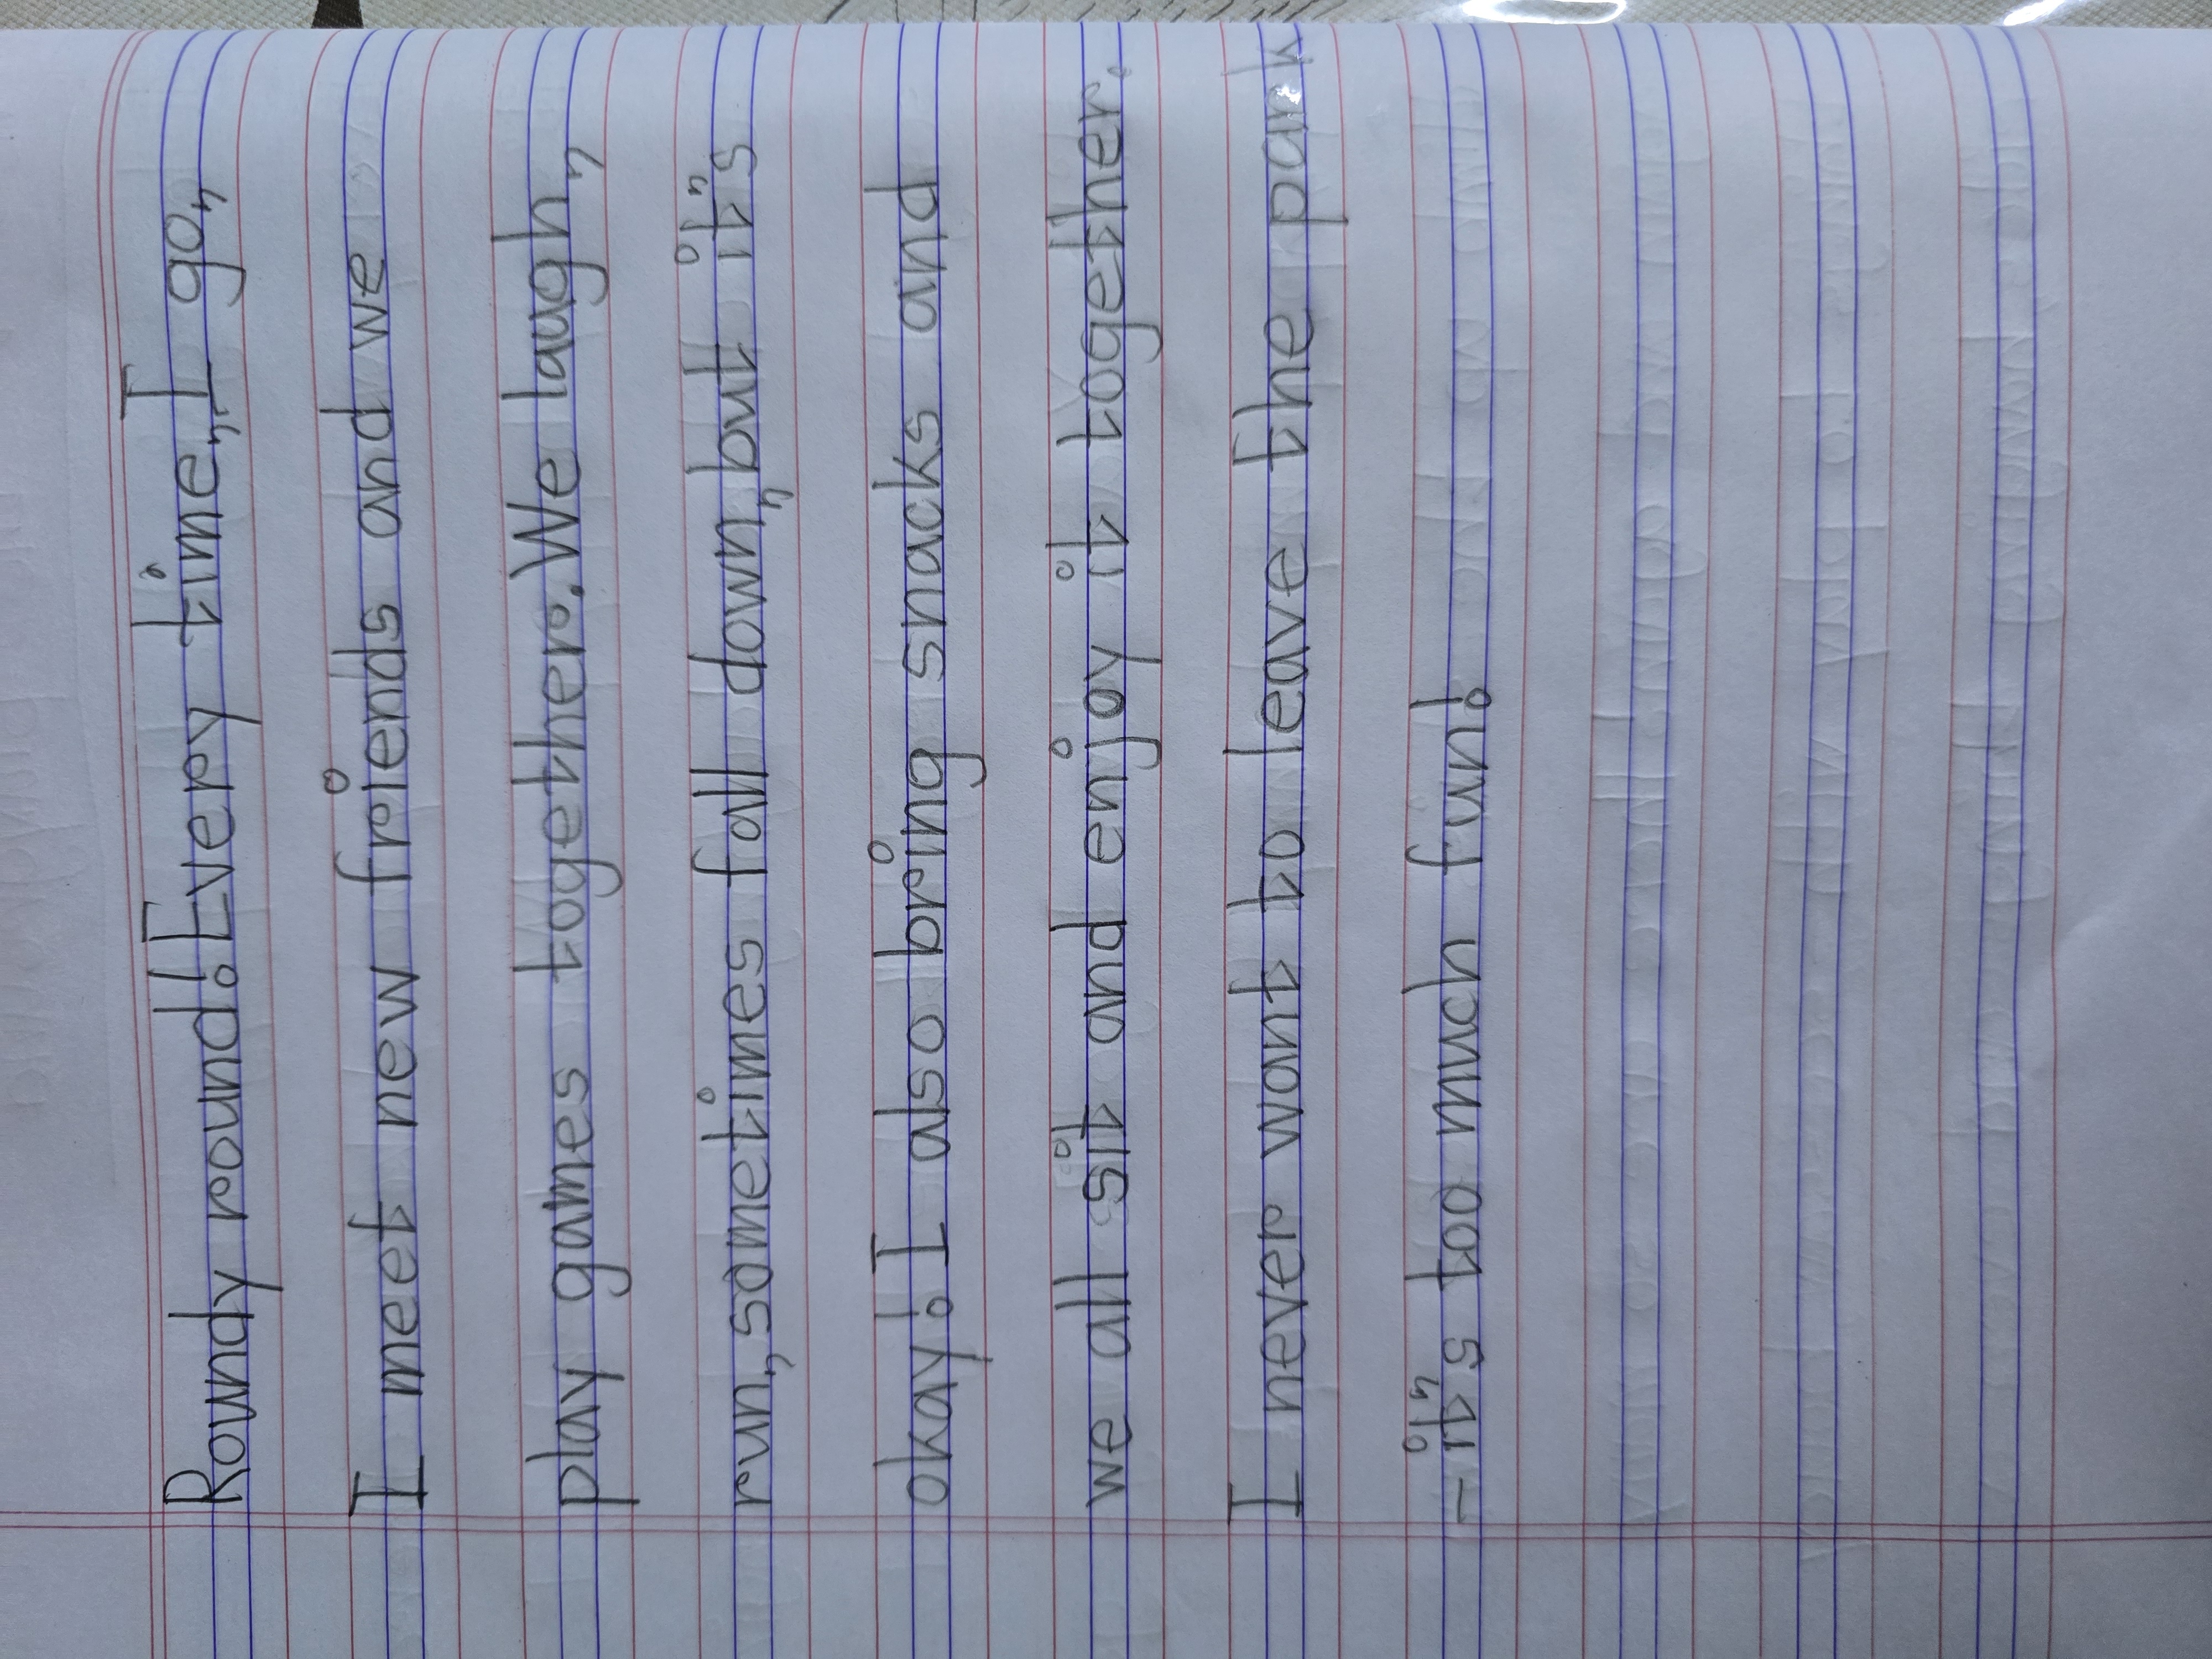 Roundy round! Every time, I go,
I meet new friends and we
play games together. We laugh,
run, sometimes fall down, but it's
okay! I also bring snacks and
we all sit and enjoy it together.
I never want to leave the park
- it's too much fun!